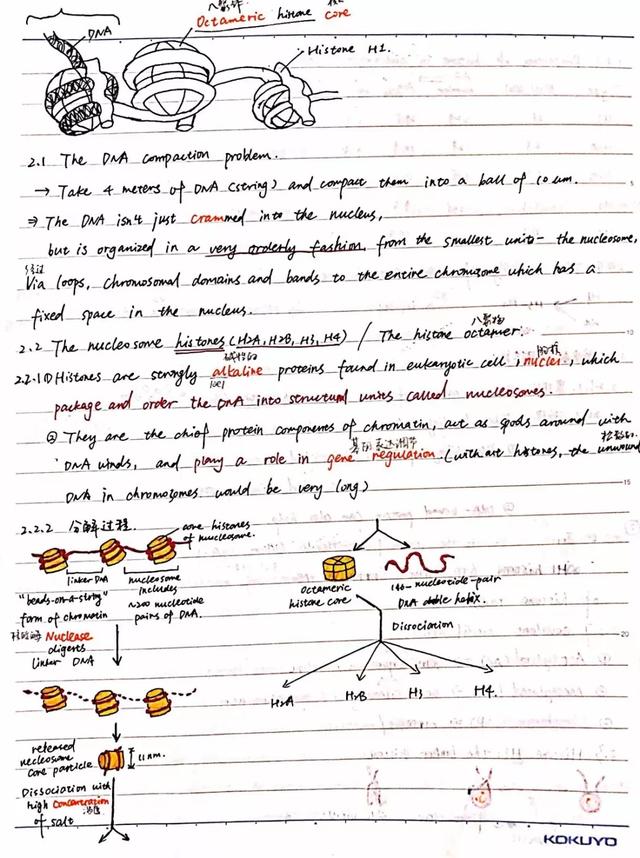 八聚体
Octameric histone core
DNA
Histone H1.
2.1 The DNA compaction problem.
→ Take 4 meters of DNA (string) and compact them into a ball of 10 um.
⇒ The DNA isn't just crammed into the nucleus,
but is organized in a very orderly fashion, from the smallest unit - the nucleosome,
经过
Via loops, chromosomal domains and bands to the entire chromosome which has a
fixed space in the nucleus.
八聚物
2.2 The nucleosome histones (H2A, H2B, H3, H4) / The histone octamer.
碱性的
2.2.1 ① Histones are strongly alkaline proteins found in eukaryotic cell nuclei, which
package and order the DNA into structural units called nucleosomes.
② They are the chief protein components of chromatin, act as spods around with
基因表达调节
DNA winds, and play a role in gene regulation. (without histones, the unwound
DNA in chromosomes would be very long)
2.2.2 分解过程.
core histones
of nucleosome.
linker DNA
nucleosome
includes
~200 nucleotide
pairs of DNA.
"beads-on-a-string"
form of chromatin
Nuclease
digests
linker DNA
released
necleosome
core particle
11nm.
Dissociation with
high concentration
of salt
octameric
histone core
146-nucleotide-pair
DNA double helix.
Dissociation
H2A H2B H3 H4.
KOKUYO